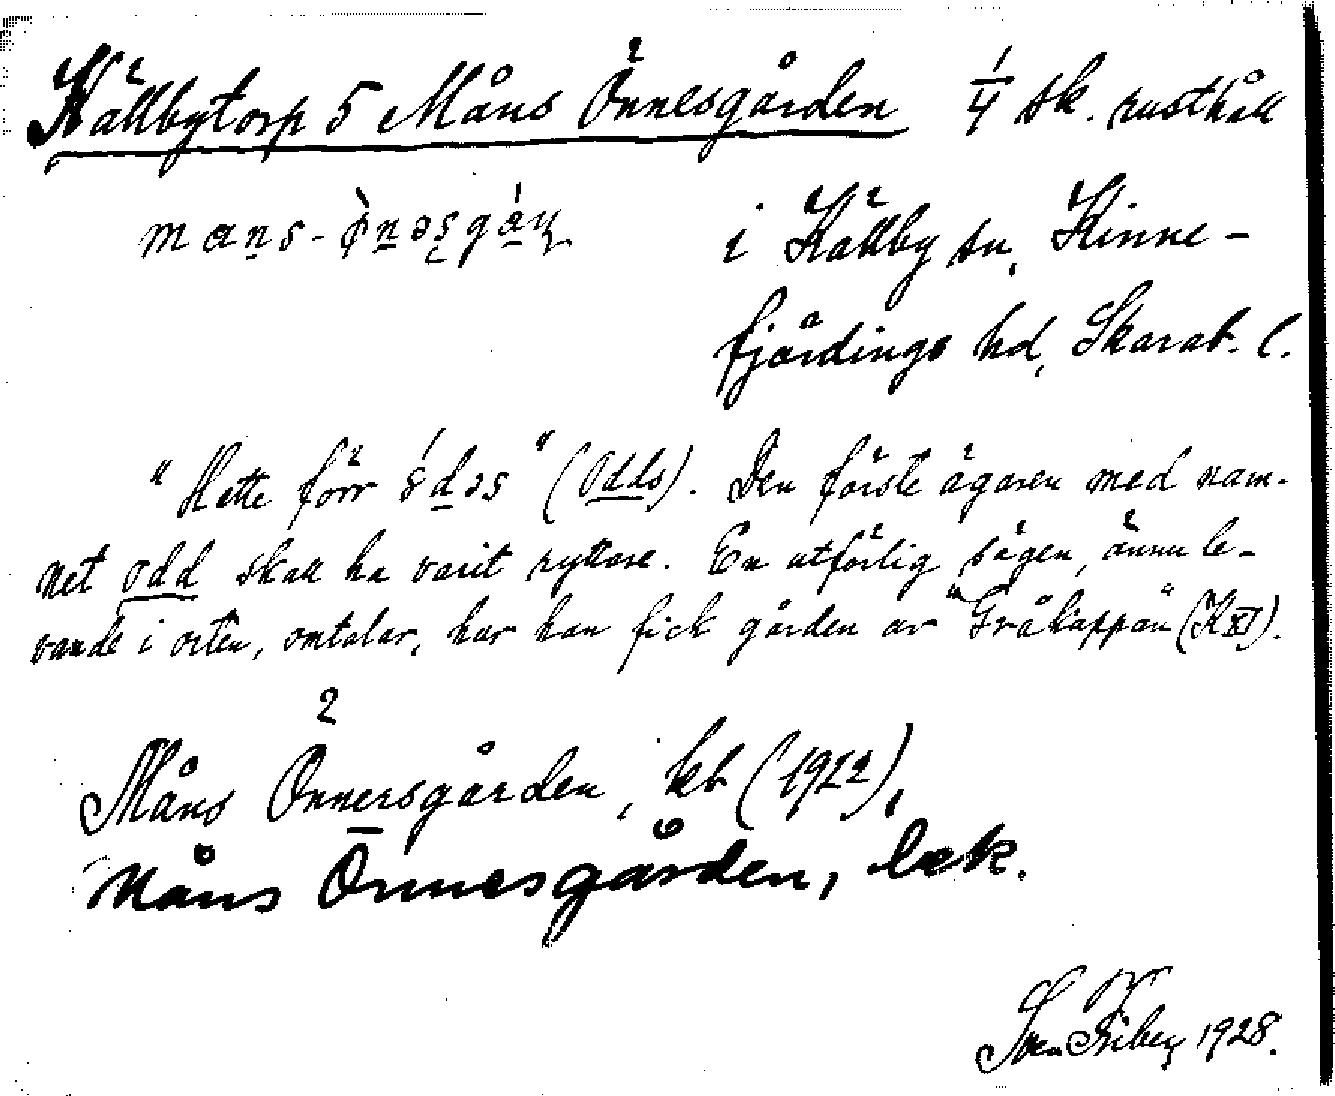 Källbytorp 5 Måns Önnesgården 1/4 sk. rusthåll
i Källby sn, Kinne-
fjärdings hd, Skarab. l.
"Hette förr ... " (Odds). Den förste ägaren med nam-
net Odd skall ha varit ryttare. En utförlig sägen, ännu le-
vande i orten, omtalar, hur han fick gården av "Gråkappan" (K XI).
2
Måns Önnersgården, kb (1922),
Måns Önnesgården, læk.
Sven 1928.